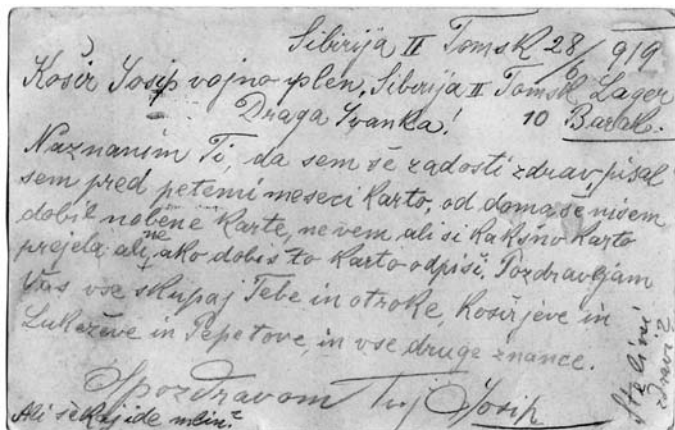 Sibirija II Tomsk 28/6 919
Košir Josip vojno plen, Sibirija II Tomsk Lager
Draga Ivanka! 10 Barak.
Naznanim Ti, da sem še zadosti zdrav, pisal
sem pred petemi meseci karto, od doma še nisem
dobil nobene karte, nevem ali si kakšno karto
prejela ali ne, ako dobiš to karto odpiši. Pozdravljam
Vas vse skupaj Tebe in otroke, Koširjeve in
Lukeževe in Pepetove, in vse druge znance.
S pozdravom Tvoj Josip
Ali še kaj ide mlin?
zdravi?